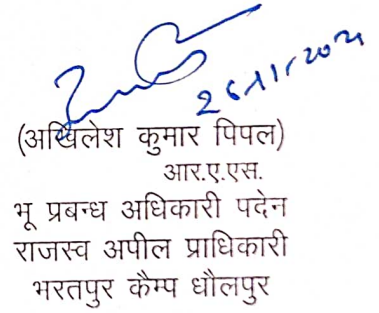 26/11/2021
(अखिलेश कुमार पिपल)
आर.ए.एस.
भू प्रबन्ध अधिकारी पदेन
राजस्व अपील प्राधिकारी
भरतपुर कैम्प धौलपुर